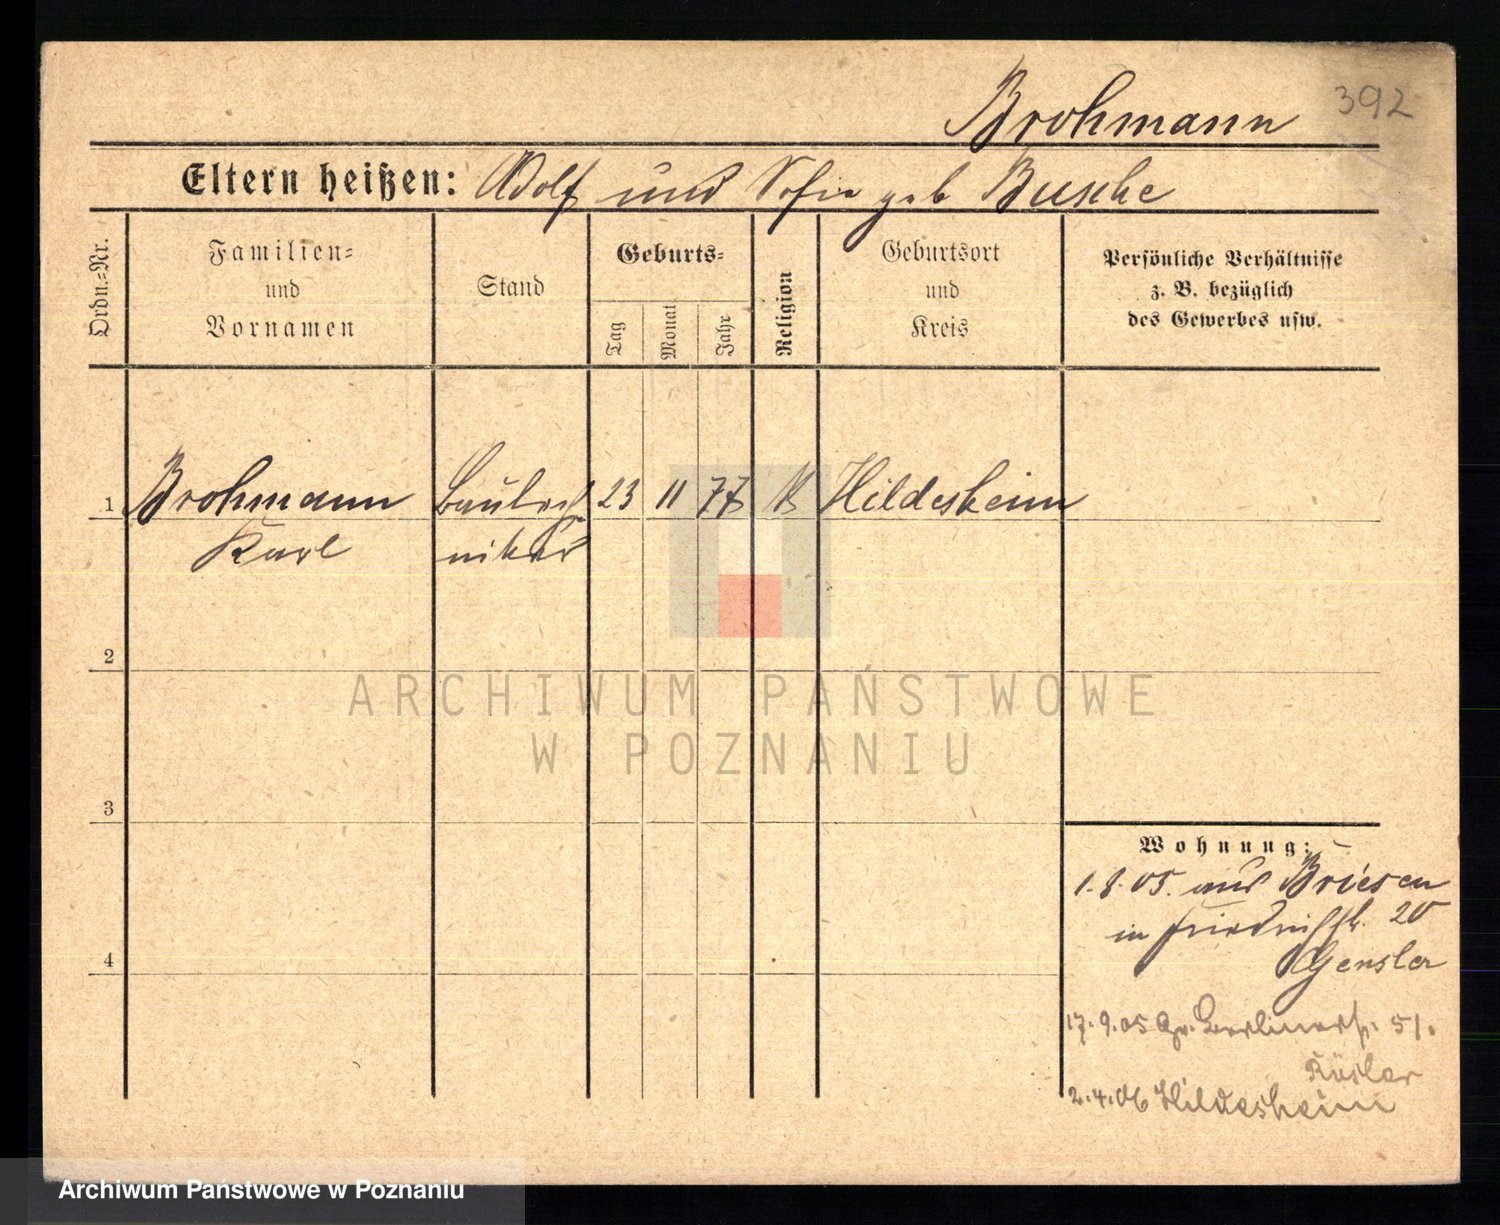 392
Brohmann
Eltern heißen: Adolf und Sofie geb Busche
Ordn.=Nr.
Familien=
und
Vornamen
Stand
Geburts=
Tag
Monat
Jahr
Religion
Geburtsort
und
Kreis
Persönliche Verhältnisse
z. B. bezüglich
des Gewerbes usw.
1 Brohmann Bautech 23 11 77 K Hildesheim
Karl niker
2
ARCHIWUM PAŃSTWOWE
W POZNANIU
3
Wohnung:
1.8.05. aus Briesen
in 20
4
Gensler
17.9.05 Gr. Berlinerstr. 51.
Rösler
2.4.06 Hildesheim
Archiwum Państwowe w Poznaniu